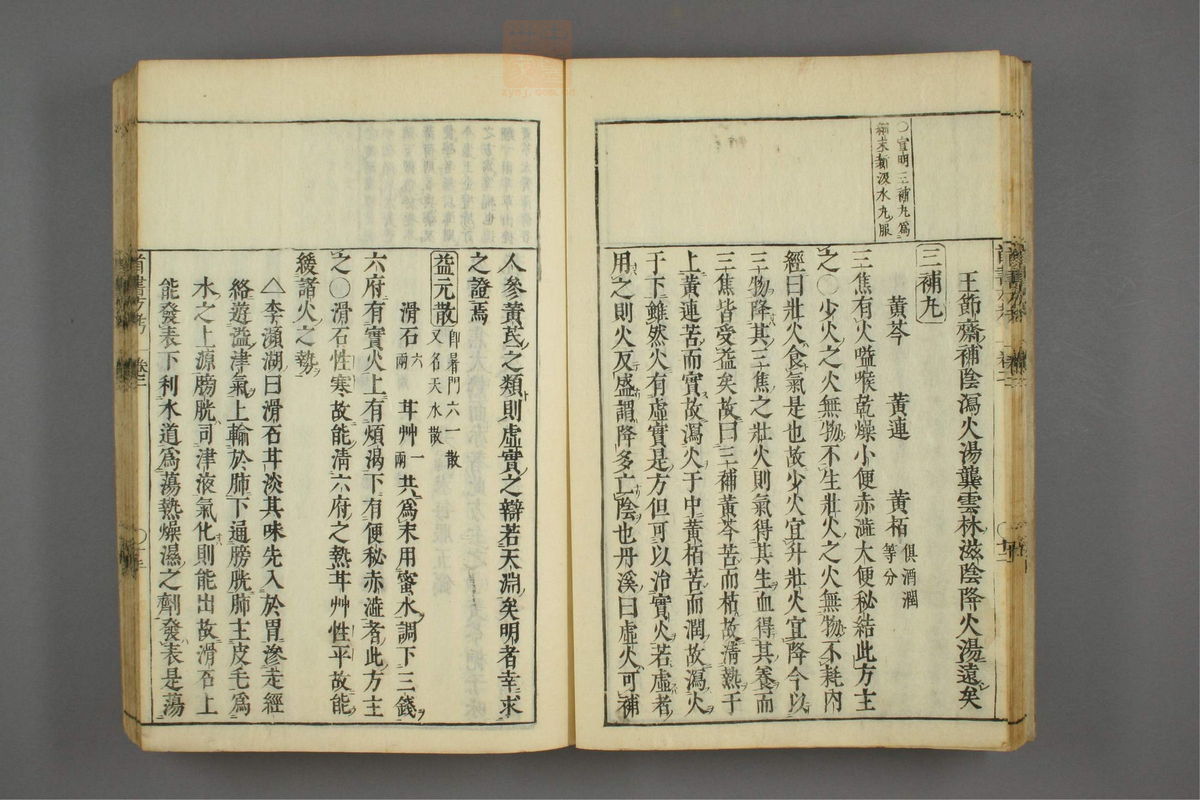 ○宣明三補丸爲
細末新汲水丸服
王節齋補陰瀉火湯龔雲林滋陰降火湯遠矣
三補丸
黃芩 黃連 黃栢 俱酒潤等分
三焦有火嗌喉乾燥小便赤澁大便秘結此方主
之○少火之火無物不生壯火之火無物不耗內
經曰壯火食氣是也故少火宜升壯火宜降今以
三物降其三焦之壯火則氣得其生血得其養而
三焦皆受益矣故曰三補黃芩苦而枯故淸熱于
上黃連苦而實故瀉火于中黃栢苦而潤故瀉火
于下雖然火有虛實是方但可以治實火若虛者
用之則火反盛謂降多亡陰也丹溪曰虛火可補
人參黃芪之類則虛實之辯若天淵矣明者幸求
之證焉
益元散 卽暑門六一散又名天水散
滑石六兩 甘艸一兩 共爲末用蜜水調下三錢
六府有實火上有煩渴下有便秘赤澁者此方主
之○滑石性寒故能淸六府之熱甘艸性平故能
緩諸火之勢
△李瀕湖曰滑石甘淡其味先入於胃滲走經
絡遊溢津氣上輸於肺下通膀胱肺主皮毛爲
水之上源膀胱司津液氣化則能出故滑石上
能發表下利水道爲蕩熱燥濕之劑發表是蕩